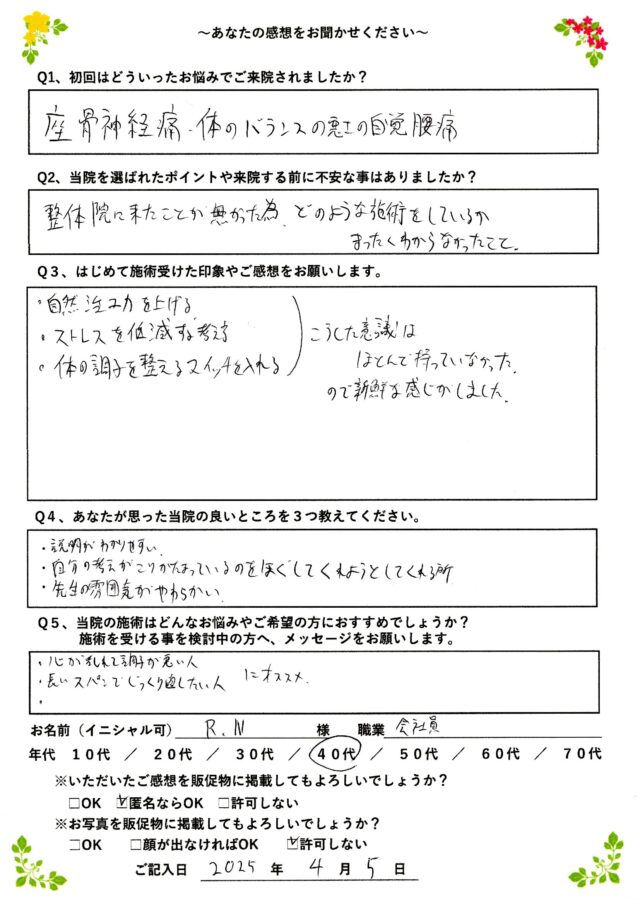 ～あなたの感想をお聞かせください～
Q1、初回はどういったお悩みでご来院されましたか？
座骨神経痛・体のバランスの悪さの自覚 腰痛
Q2、当院を選ばれたポイントや来院する前に不安な事はありましたか？
整体院に来たことが無かった為、どのような施術をしているか
まったくわからなかったこと。
Q３、はじめて施術受けた印象やご感想をお願いします。
・自然治ユ力を上げる
・ストレスを低減する考え方
・体の調子を整えるスイッチを入れる
こうした意識は
ほとんど持っていなかった
ので新鮮な感じがしました。
Q４、あなたが思った当院の良いところを３つ教えてください。
・説明がわかりやすい
・自分の考えがこりかたまっているのをほぐしてくれようとしてくれる所
・先生の雰囲気がやわらかい
Q５、当院の施術はどんなお悩みやご希望の方におすすめでしょうか？
施術を受ける事を検討中の方へ、メッセージをお願いします。
・心が乱れて調子が悪い人
・長いスパンでじっくり直したい人
にオススメ.
・
お名前（イニシャル可） R.N 様 職業 会社員
年代 １０代 ／ ２０代 ／ ３０代 ／ ４０代 ／ ５０代 ／ ６０代 ／ ７０代
※いただいたご感想を販促物に掲載してもよろしいでしょうか？
□OK ☑匿名ならOK □許可しない
※お写真を販促物に掲載してもよろしいでしょうか？
□OK □顔が出なければOK ☑許可しない
ご記入日 2025 年 4 月 5 日